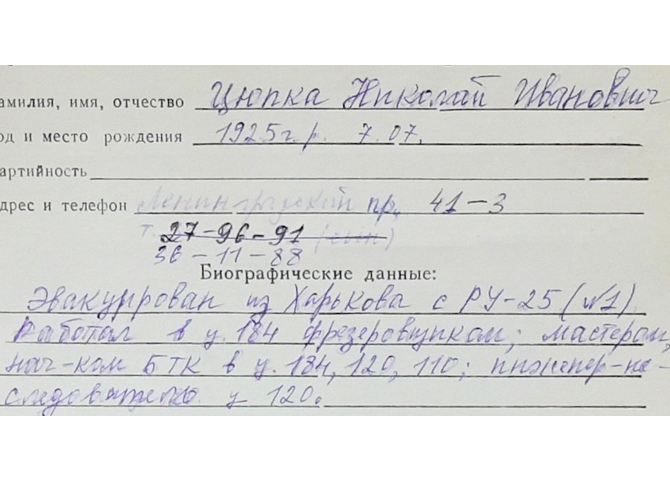 амилия, имя, отчество Цюпка Николай Иванович
од и место рождения 1925 г.р. 7.07.
артийность
дрес и телефон Ленинградский пр, 41-3
т. 27-96-91 (сын)
36-11-88
Биографические данные:
Эвакуирован из Харькова с РУ-25 (№1).
Работал в ц. 184 фрезеровщиком; мастером,
нач-ком БТК в ц. 184, 120, 110; инженер-ис-
следователь ц 120.